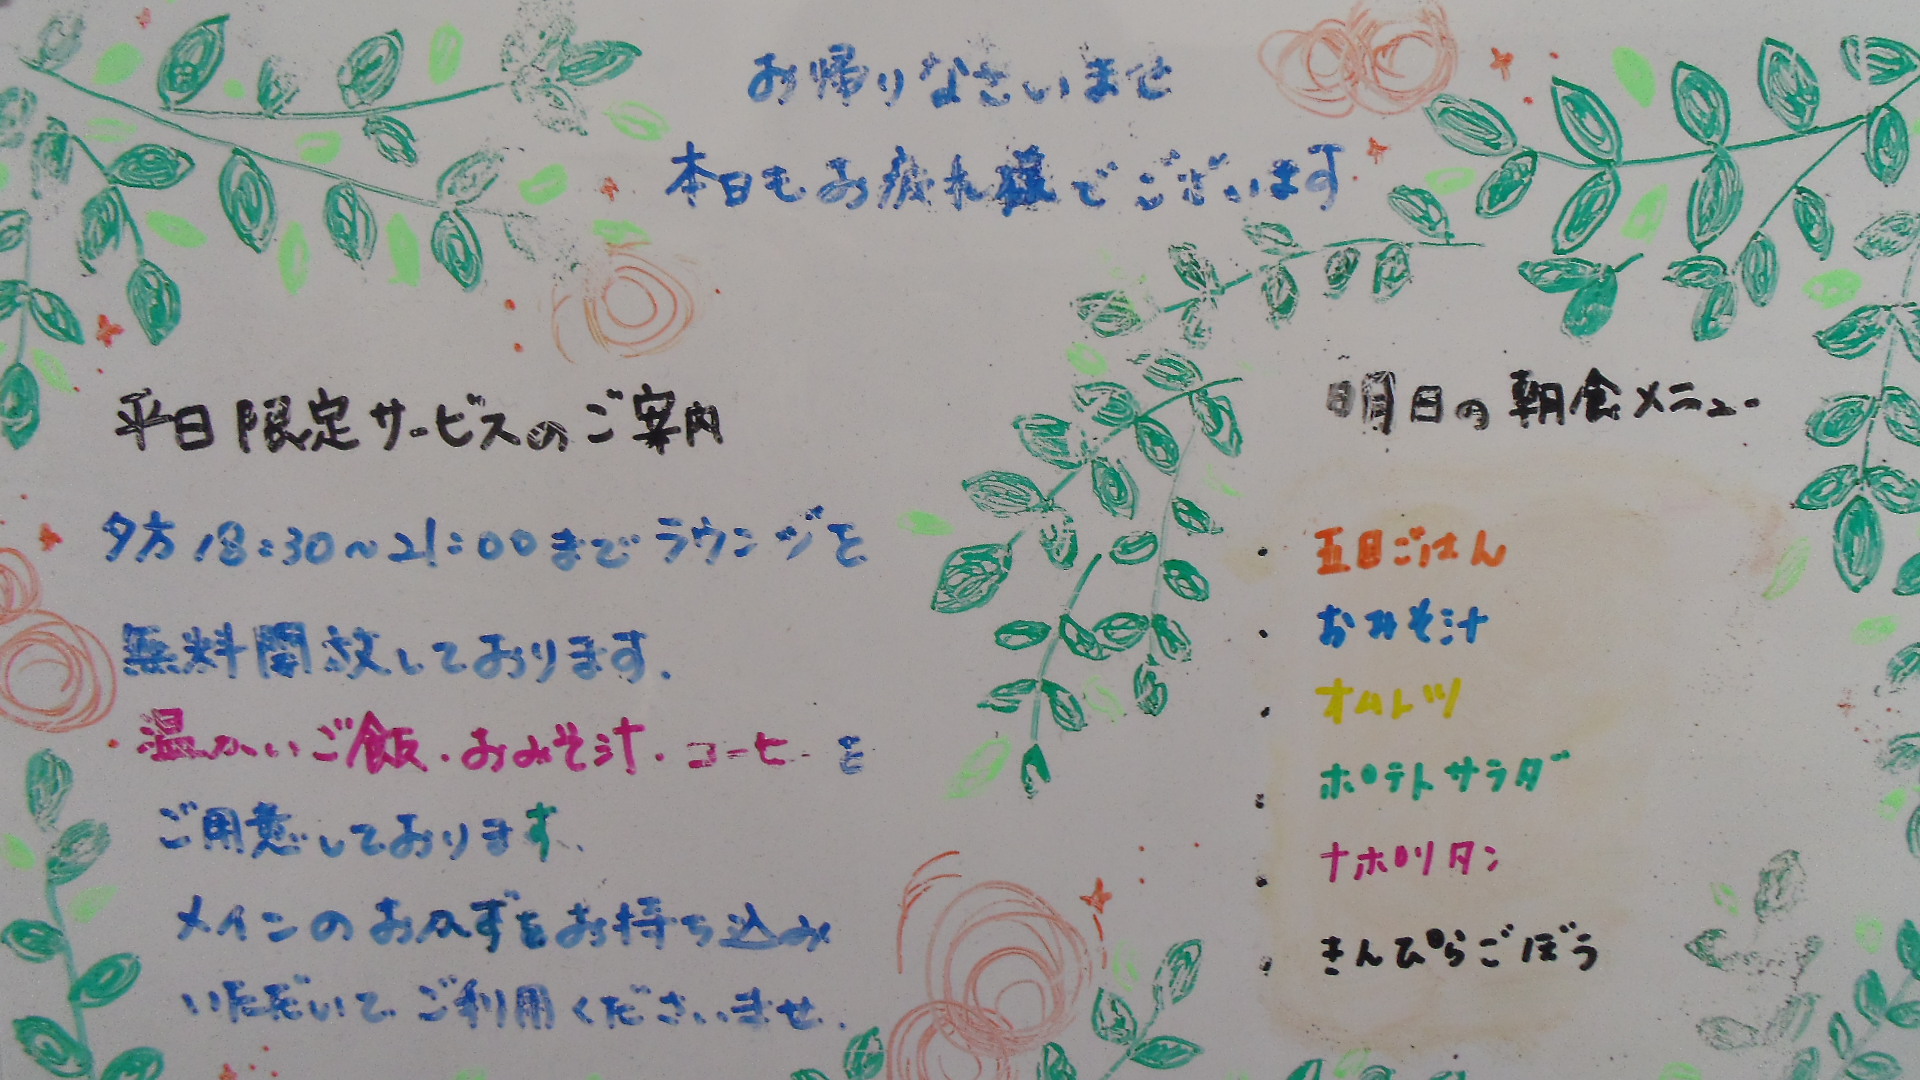 お帰りなさいませ
本日もお疲れ様でございます
平日限定サービスのご案内
夕方18:30~21:00までラウンジを
無料開放しております.
温かいご飯・おみそ汁・コーヒーを
ご用意しております.
メインのおかずをお持ち込み
いただいてご利用くださいませ.
明日の朝食メニュー
・五目ごはん
・おみそ汁
・オムレツ
・ポテトサラダ
・ナポリタン
・きんぴらごぼう